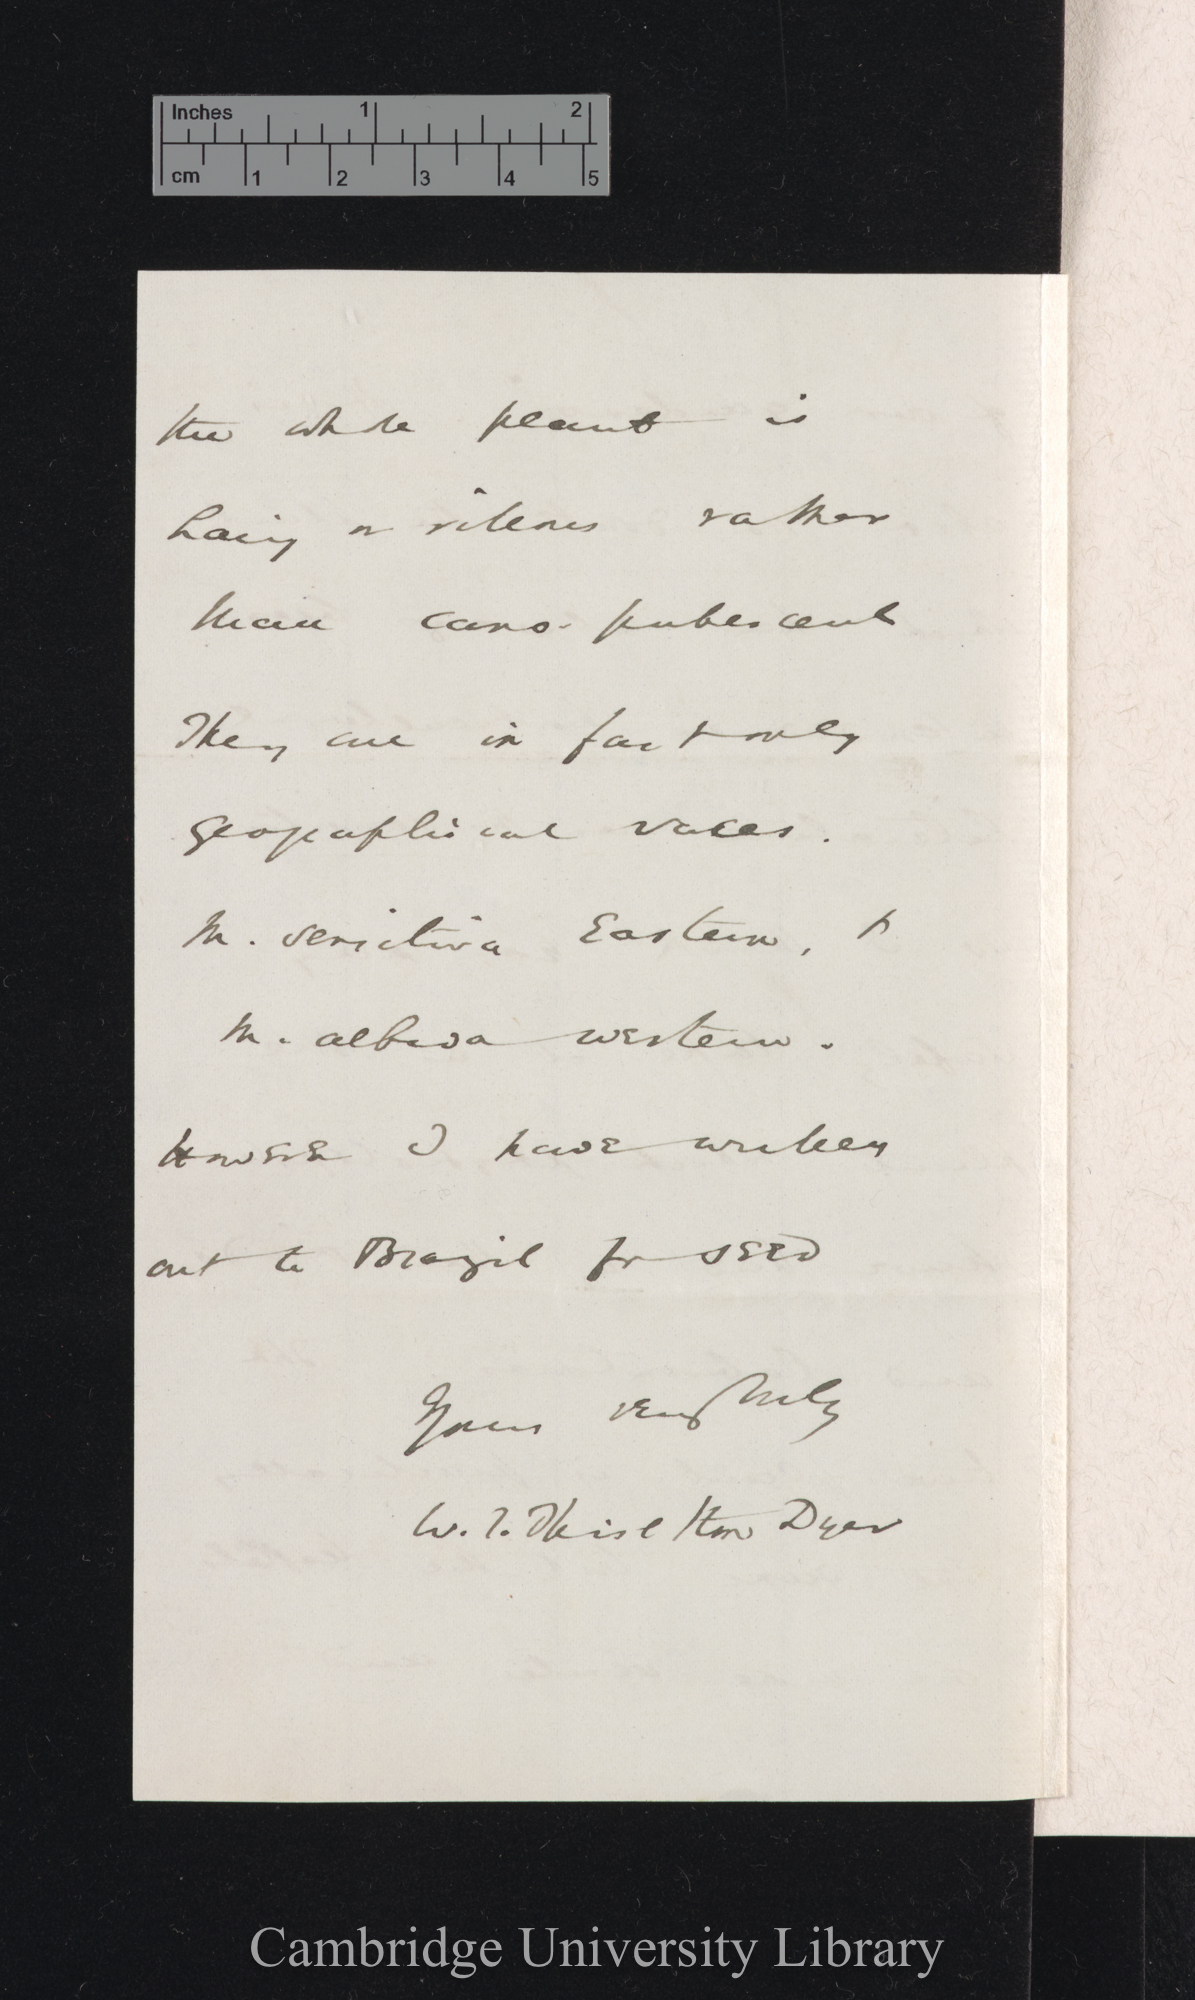 Inches 1 2
cm 1 2 3 4 5
the whole plant is
hairy or villous rather
than cano-pubescent
They are in fact only
geographical races.
M. sensitiva Eastern, &
M. albida western.
However I have written
out to Brazil for seed
Yours very truly
W. T. Thiselton Dyer
Cambridge University Library